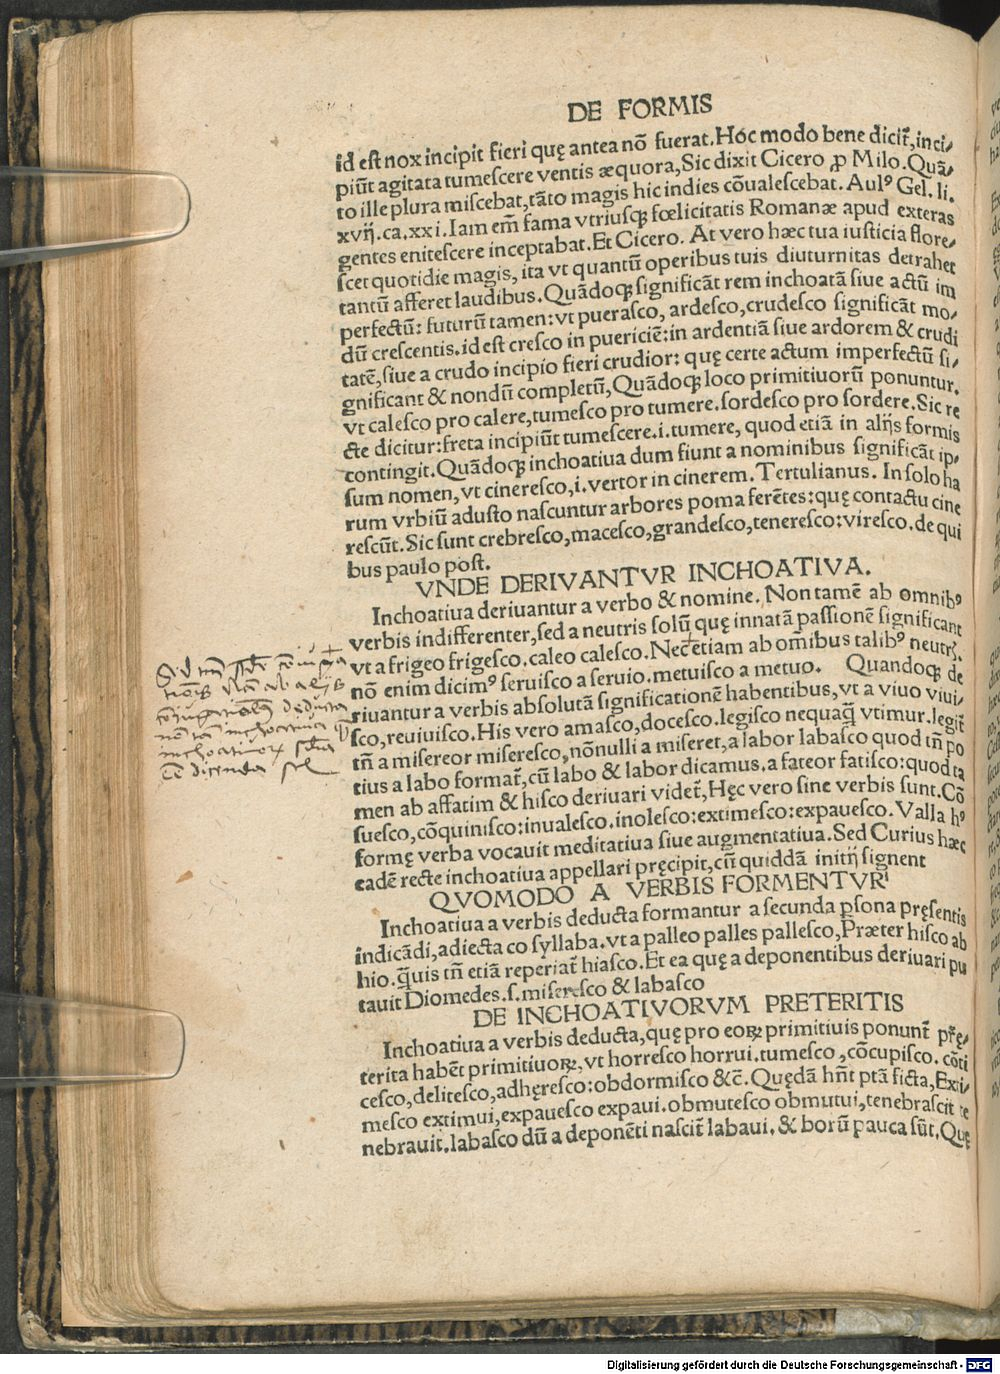 DE FORMIS
id est nox incipit fieri quę antea nõ fuerat. Hoc modo bene dicit̃, inci-
piũt agitata tumescere ventis æquora, Sic dixit Cicero ꝓ Milo. Quã-
to ille plura miscebat, tãto magis hic indies cõualescebat. Aulꝰ Gel. li.
xvij. ca. xxi. Iam em̃ fama vtriusqꝫ fœlicitatis Romanæ apud exteras
gentes enitescere inceptabat. Et Cicero. At vero hæc tua iusticia flore-
scet quotidie magis, ita vt quantũ operibus tuis diuturnitas detrahet
tantũ afferet laudibus. Quãdoqꝫ significãt rem inchoatã siue actũ im
perfectũ: futurũ tamen: vt puerasco, ardesco, crudesco significãt mo-
dũ crescentis. id est cresco in puericiẽ: in ardentiã siue ardorem & crudi
tatẽ, siue a crudo incipio fieri crudior: quę certe actum imperfectũ si-
gnificant & nondũ completũ, Quãdoqꝫ loco primitiuorũ ponuntur.
vt calesco pro calere, tumesco pro tumere. sordesco pro sordere. Sic re
cte dicitur: freta incipiũt tumescere. i. tumere, quod etiã in alijs formis
contingit. Quãdoqꝫ inchoatiua dum fiunt a nominibus significãt ip-
sum nomen, vt cineresco, i. vertor in cinerem. Tertulianus. In solo ha
rum vrbiũ adusto nascuntur arbores poma ferẽtes: quę contactu cine
rescũt. Sic sunt crebresco, macesco, grandesco, teneresco: viresco. de qui
bus paulo post.
VNDE DERIVANTVR INCHOATIVA.
Inchoatiua deriuantur a verbo & nomine. Non tamẽ ab omnibꝰ
verbis indifferenter, sed a neutris solũ quę innatã passionẽ significant
vt a frigeo frigesco. caleo calesco. Nec etiam ab om̃ibus talibꝰ neutrꝭ.
nõ enim dicimꝰ seruisco a seruio. metuisco a metuo. Quandoqꝫ de
riuantur a verbis absolutã significationẽ habentibus, vt a viuo viui-
sco, reuiuisco. His vero amasco, docesco. legisco nequaq̃ vtimur. legit̃
tñ a misereor miseresco, nõnulli a miseret, a labor labasco quod tñ po
tius a labo format̃, cũ labo & labor dicamus. a fateor fatisco: quod ta
men ab affatim & hisco deriuari videt̃, Hęc vero sine verbis sunt. Cõ
suesco, cõquinisco: inualesco. inolesco: extimesco: expauesco. Valla hꝰ
formę verba vocauit meditatiua siue augmentatiua. Sed Curius hæc
eadẽ recte inchoatiua appellari pręcipit, cũ quiddã initij signent
QVOMODO A VERBIS FORMENTVR
Inchoatiua a verbis deducta formantur a secunda ꝑsona pręsentis
indicãdi, adiecta co syllaba. vt a palleo palles pallesco, Præter hisco ab
hio. q̃uis tñ etiã reperiat̃ hiasco. Et ea quę a deponentibus deriuari pu
tauit Diomedes. s. miseresco & labasco
DE INCHOATIVORVM PRETERITIS
Inchoatiua a verbis deducta, quę pro eoꝝ primitiuis ponunt̃ pr̃ę-
terita habẽt primitiuoꝝ, vt horresco horrui. tumesco, cõcupisco. cõti
cesco, delitesco, adhęresco: obdormisco &c̃. Quędã hñt ptã ficta, Exti-
mesco extimui, expauesco expaui. obmutesco obmutui, tenebrascit te
nebrauit. labasco dũ a deponẽti nascit̃ labaui. & horũ pauca sũt. Quę
Digitalisierung gefördert durch die Deutsche Forschungsgemeinschaft - DFG